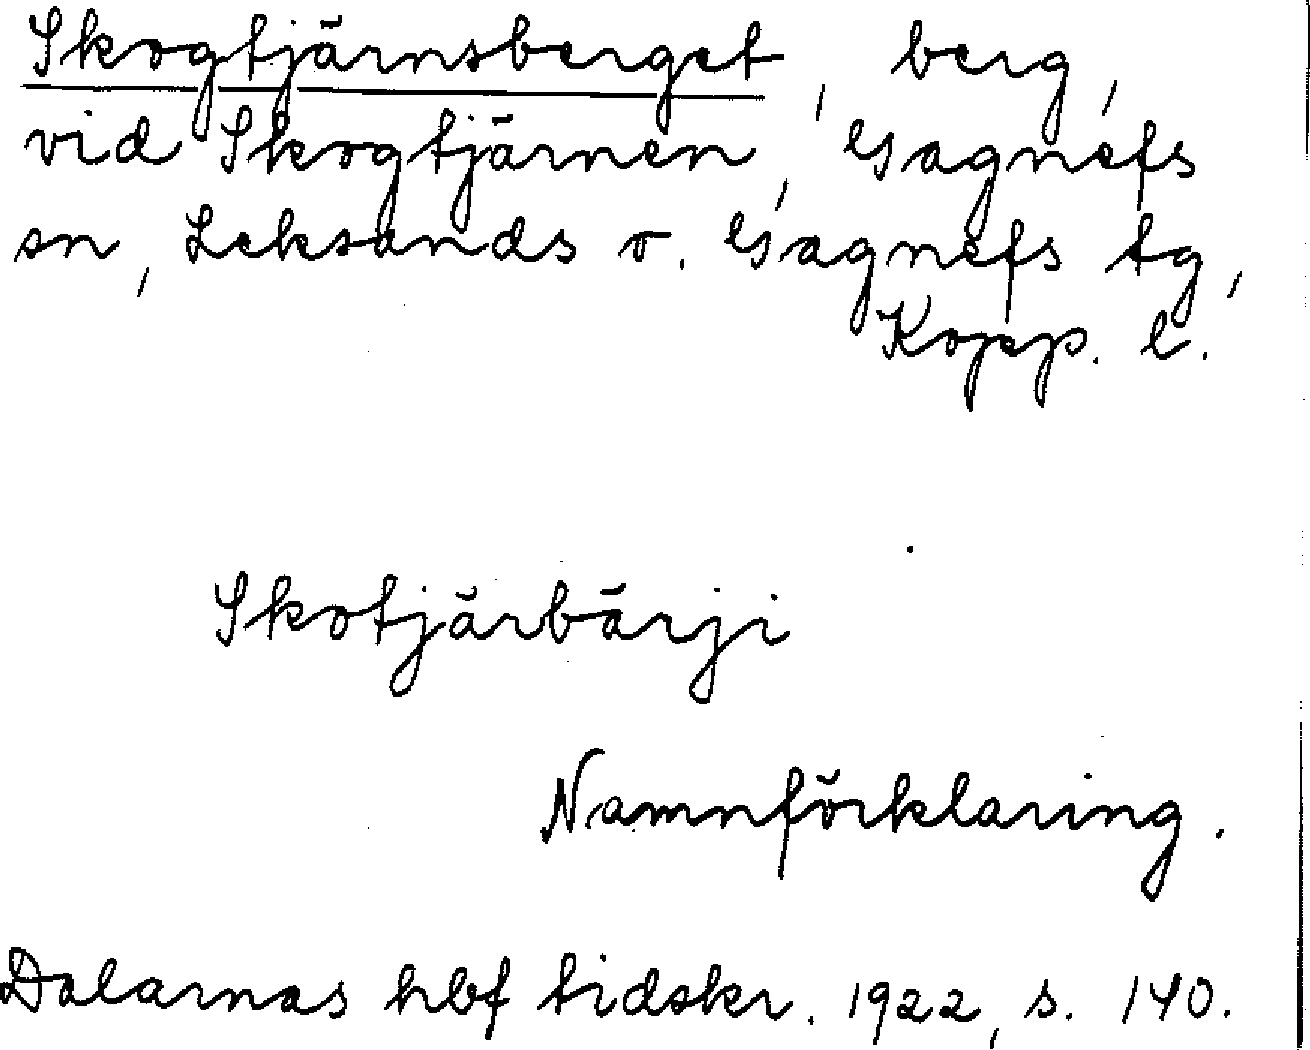 Skogtjärnsberget, berg,
vid Skogtjärnen, Gagnefs
sn, Leksands o. Gagnefs tg,
Kopp. l.
Skotjärbärji
Namnförklaring.
Dalarnas hbf tidskr. 1922, s. 140.